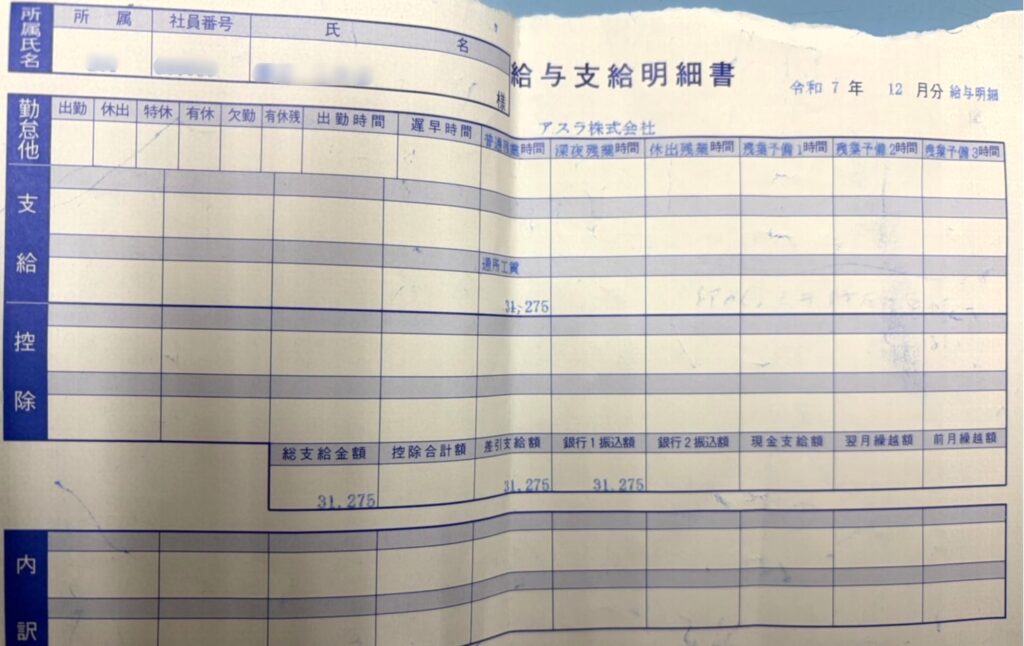 所属氏名
所属 社員番号 氏名
様
給与支給明細書
令和 7 年 12 月分 給与明細
アスラ株式会社
勤怠他
出勤 休出 特休 有休 欠勤 有休残 出勤時間 遅早時間 普通残業時間 深夜残業時間 休出残業時間 残業予備1時間 残業予備2時間 残業予備3時間
支給
通所工賃
31,275
控除
総支給金額 控除合計額 差引支給額 銀行1振込額 銀行2振込額 現金支給額 翌月繰越額 前月繰越額
31,275 31,275 31,275
内訳